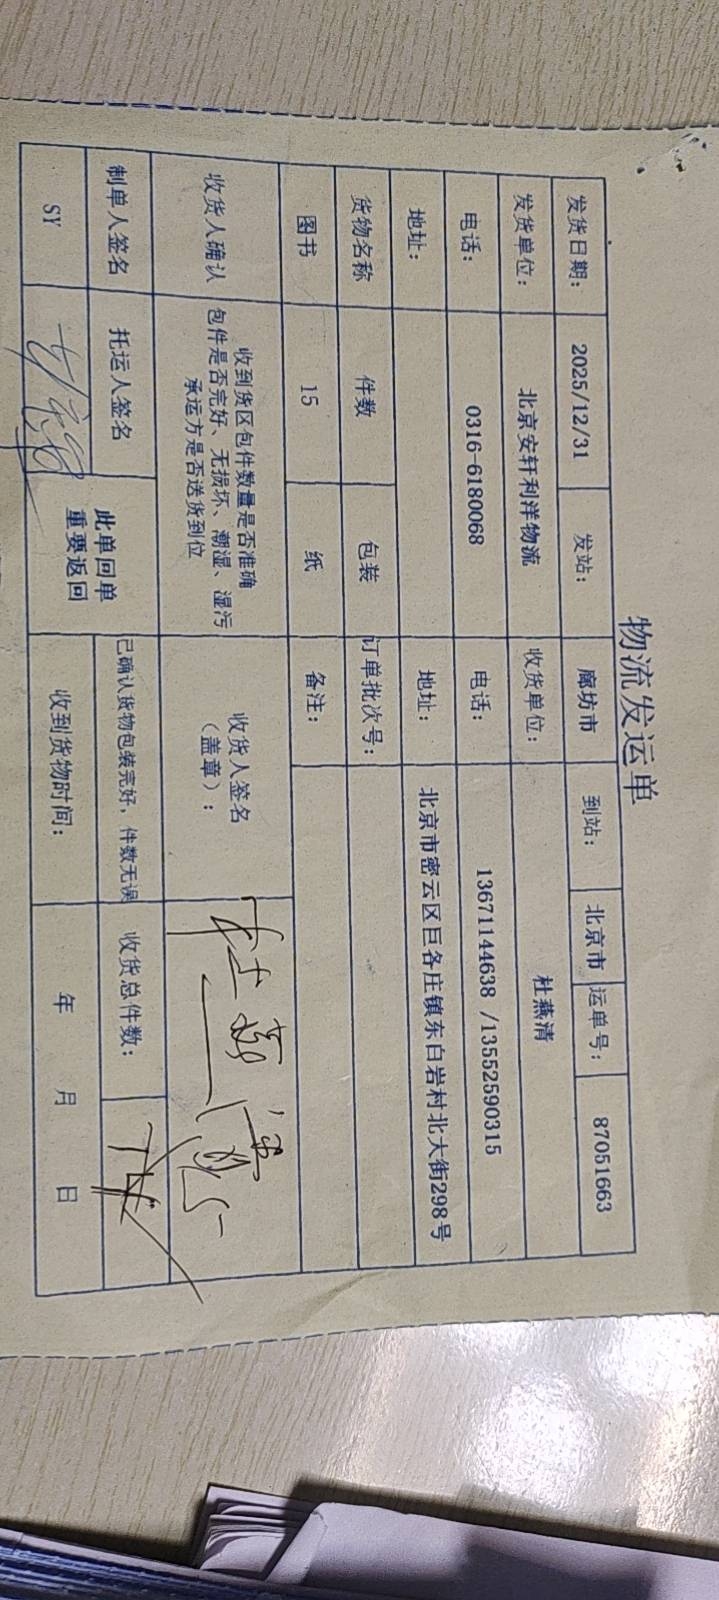 物流发运单
发货日期： 2025/12/31 发站： 廊坊市 到站： 北京市 运单号： 87051663
发货单位： 北京安轩利洋物流 收货单位： 杜燕清
电话： 0316-6180068 电话： 13671144638 /13552590315
地址： 地址： 北京市密云区巨各庄镇东白岩村北大街298号
货物名称 件数 包装 订单批次号：
图书 15 纸 备注：
收货人确认 收到货区包件数量是否准确
包件是否完好、无损坏、潮湿、湿污
承运方是否送货到位
收货人签名
（盖章）：
制单人签名 托运人签名 此单回单
重要返回
已确认货物包装完好，件数无误 收货总件数：
SY 收到货物时间： 年 月 日